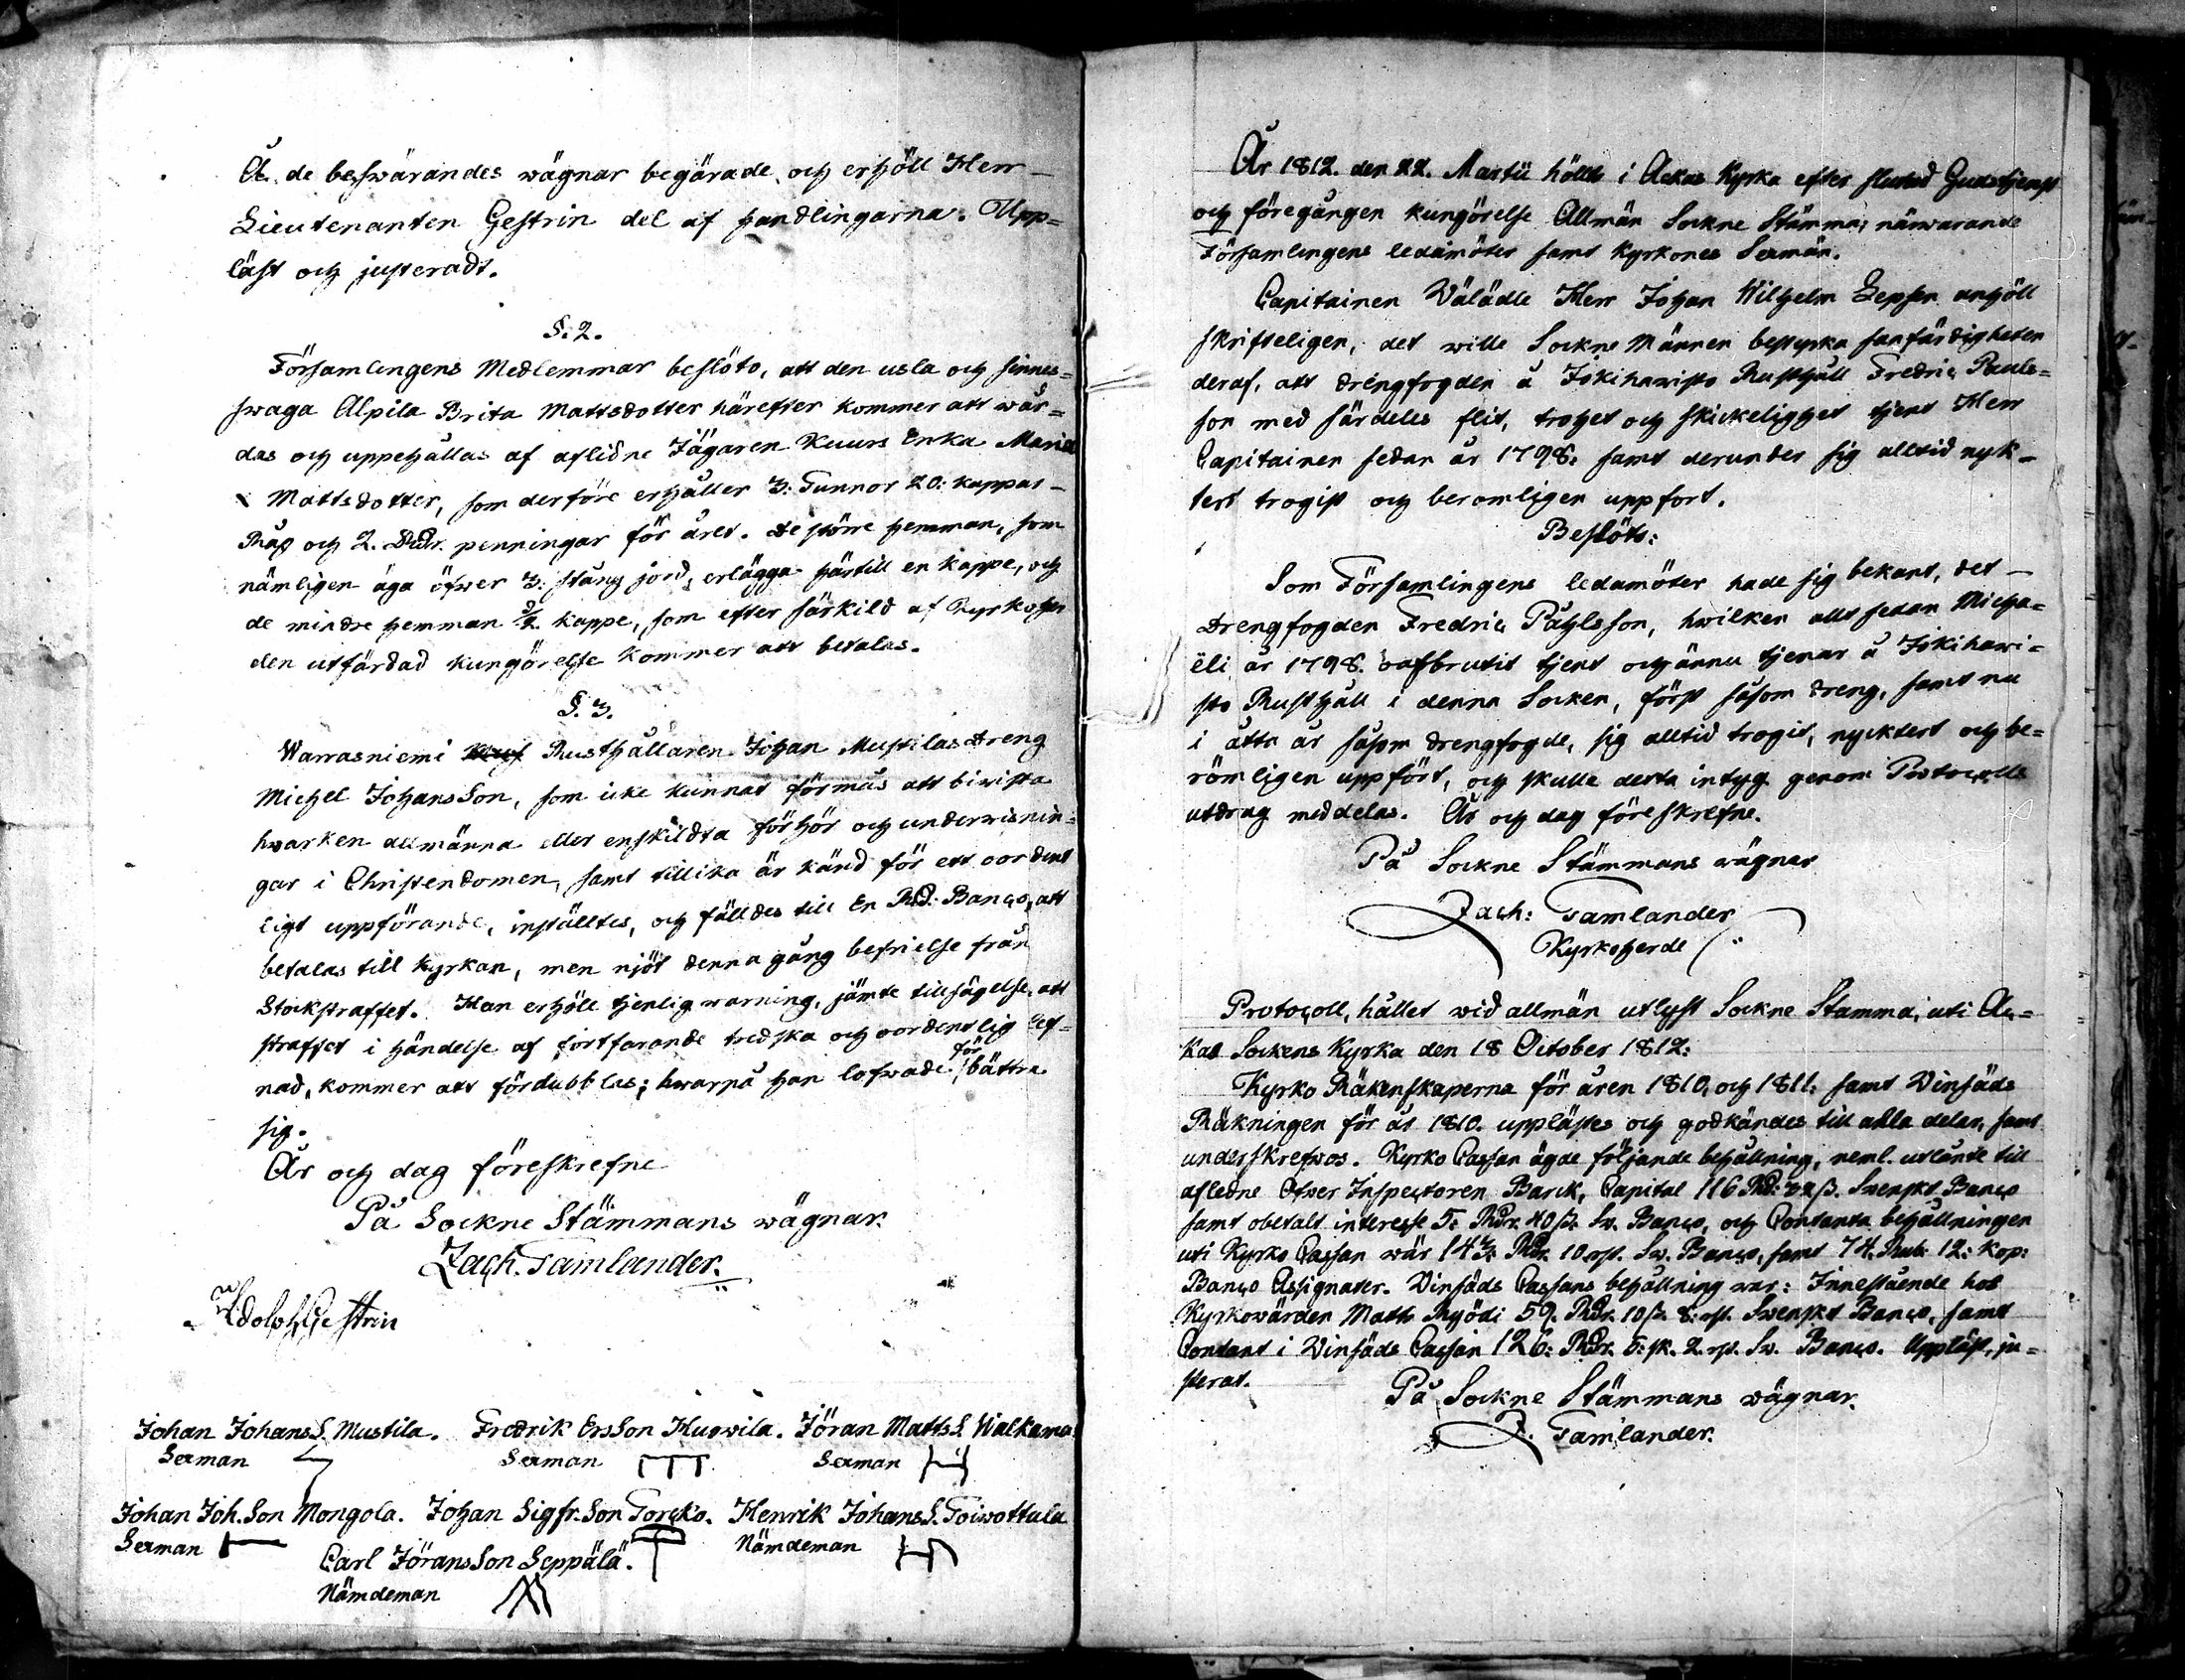 Å de beswärandes wägnar begärade och erhöll Herr
Lieutenanten Gestrin del af handlingarna. Upp=
läst och justeradt.
§. 2.
Församlingens Medlemmar beslöto, att den usla och sinnes=
swaga Alpila Brita Mattsdotter härefter kommer att wår=
das och uppehållas af aflidne Jägaren Kuurs Enka Maria
Mattsdotter, som derföre erhåller 3: Tunnor 20: kappar
Råg och 2. RDr. penningar för året. De större hemman, som
nämligen äga öfwer 3: stång jord, erlägga härtill en kappe, och
de mindre hemman ½ kappe, som efter särkild af Kyrkoher
den utfärdad kungörelse kommer att betalas.
§. 3.
Warrasniemi Rusthållaren Johan Mustilas Dreng
Michel JohansSon, som icke kunnat förmås att biwista
hwarken allmänna eller enskildta förhör och underwisnin=
gar i Christendomen, samt tillika är känd för ett oordent
ligt uppförande, inställtes, och fälldes till En RD. Banco, att
betalas till Kyrkan, men njöt denna gång befrielse från
Stockstraffet. Han erhöll tjenlig warning, jämte tillsägelse, att
straffet i händelse af fortfarande tredska och oordentlig lef=
nad, kommer att fördubblas; hwarpå han lofwade för bättra
sig.
År och dag föreskrefne
På Sockne Stämmans wägnar.
Zach. Tamlander.
Adolph Gestrin
Johan JohansS. Mustila. Fredrik ErsSon Huowila. Jöran MattsS. Walkama
Sexman Sexman Sexman
Johan Joh.Son Mongola. Johan Sigfr.Son Torcko. Henrik JohansS. Toiwottula
Sexman Nämdeman
Carl JöransSon Seppälä.
Nämdeman
År 1812. den 22. Martii hölts i Ackas Kyrka efter slutad Gudstjenst
och föregången kungörelse Allmän Sockne Stämma; närwarande
Församlingens ledamöter samt Kyrkones Sexmän.
Capitainen Wälädle Herr Johan Wilhelm Lepsen anhöll
skrifteligen, det wille Sockne Männen bestyrka sanfärdigheten
deraf, att drengfogden å Jokihawisto Rusthåll Fredric Pauls=
son med särdeles flit, trohet och skickelighet tjent Herr
Capitainen sedan år 1798. samt derunder sig alltid nyk=
tert trogit och beromligen uppfort.
Beslöts:
Som Församlingens ledamöter hade sig bekant, det
Drengfogden Fredric Påhlsson, hwilken allt sedan Micha=
ëli år 1798. oafbrutit tjent och ännu tjenar å Jokihawi=
sto Rusthåll i denna Socken, först såsom dreng, samt nu
i åtta år såsom drengfogde, sig alltid trogit, nycktert och be=
römligen uppfört, och skulle detta intyg genom Protocolls
utdrag meddelas. År och dag föreskrefne.
På Sockne Stämmans wägnar
Zach: Tamlander
Kyrkoherde
Protocoll, hållet wid allmän utlyst Sockne Stamma, uti Ac=
kas Sockens Kyrka den 18 October 1812:
Kyrko Räkenskaperna för åren 1810, och 1811: samt Vinsäds
Räkningen för år 1810. upplästes och godkändes till alla delar, samt
underskrefwos. Kyrko Cassan ägde följande behållning, neml. utlånte till
afledne Öfwer Inspectoren Barck, Capital 116 RD: 32 ß. Swenskt Banco
samt obetalt interesse 5: RDr. 40 ß. Sw. Banco, och Contanta behållningen
uti Kyrko Cassan wär 143: RDr. 10 rst. Sw. Banco, samt 74. Rub: 12: kop:
Banco Assignater. Vinsäds Cassans behållning war: Innestående hos
Kyrkowärden Matts Ryödi 59. RDr. 10 ß. 8: rst. Swenskt Banco, samt
Contant i Vinsäds Cassan 126: RDr. 5: sk. 2 rst. Sw. Banco. Uppläst, ju=
sterat.
På Sockne Stämmans wägnar.
Z. Tamlander.